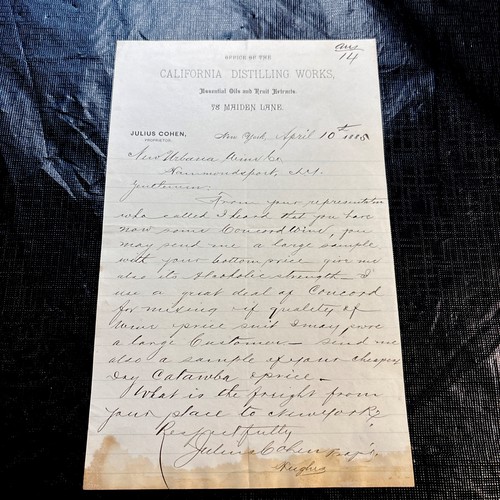 ans
14
OFFICE OF THE
CALIFORNIA DISTILLING WORKS,
Essential Oils and Fruit Extracts.
78 MAIDEN LANE.
JULIUS COHEN,
PROPRIETOR.
New York, April 10th 1885
New Urbana Wine Co
Hammondsport, N.Y.
Gentlemen:
From your representative
who called I heard that you have
now some Concord Wine, you
may send me a large sample
with your bottom price give me
also its Alcoholic strength. I
use a great deal of Concord
for mixing & if quality of
wine & price suit I may prove
a large Customer. Send me
also a sample of your cheapest
Dry Catawba & price.
What is the freight from
your place to New York?
Respectfully
Julius Cohen Prop'r.